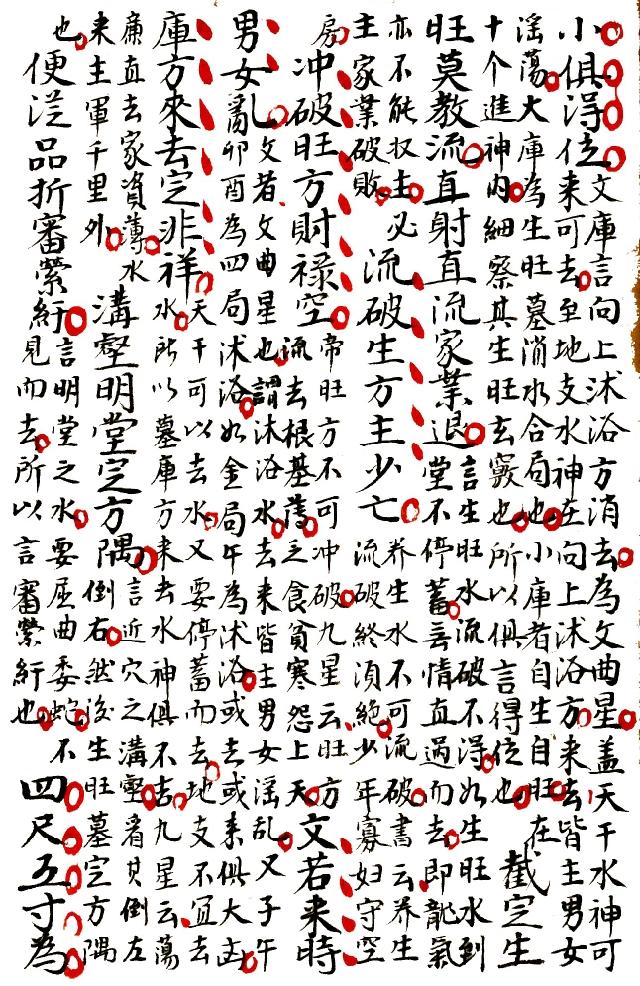 小俱淂位
文庫言向上沭浴方消去為文曲星盖天干水神可
来可去至地支水神在向上沭浴方来去皆主男女
淫蕩大庫為生旺墓消水合局也小庫者自生自旺在
十个進神内細察其生旺去竅也所以俱言得位也
截定生
旺莫教流直射直流家業退
言生旺水流破不得如生旺水到
堂不停蓄無情直過而去即龍氣
亦不能収主必
主家業破敗
流破生方主少亡
养生水不可流破書云养生
流破終湏絶少年寡婦守空
房
冲破旺方財禄空
帝旺方不可冲破九星云旺方
流去根基薄乏食貧寒怨上天
文若来時
男女亂
文者文曲星也謂沐浴水去来皆主男女淫乱又子午
卯酉為四局沭浴如金局午為沭浴或去或来俱大凶
庫方來去定非祥
天干可以去水又要停蓄而去地支不宜去
水所以墓庫方来去水神俱不吉九星云蕩
廉直去家資薄水
来主軍千里外
也
溝壑明堂定方隅
言近穴之溝壑看其倒左
倒右然後生旺墓定方隅
便泛品折審縈紆
言明堂之水要屈曲委蛇不
見而去所以言審縈紆也
四尺五寸為